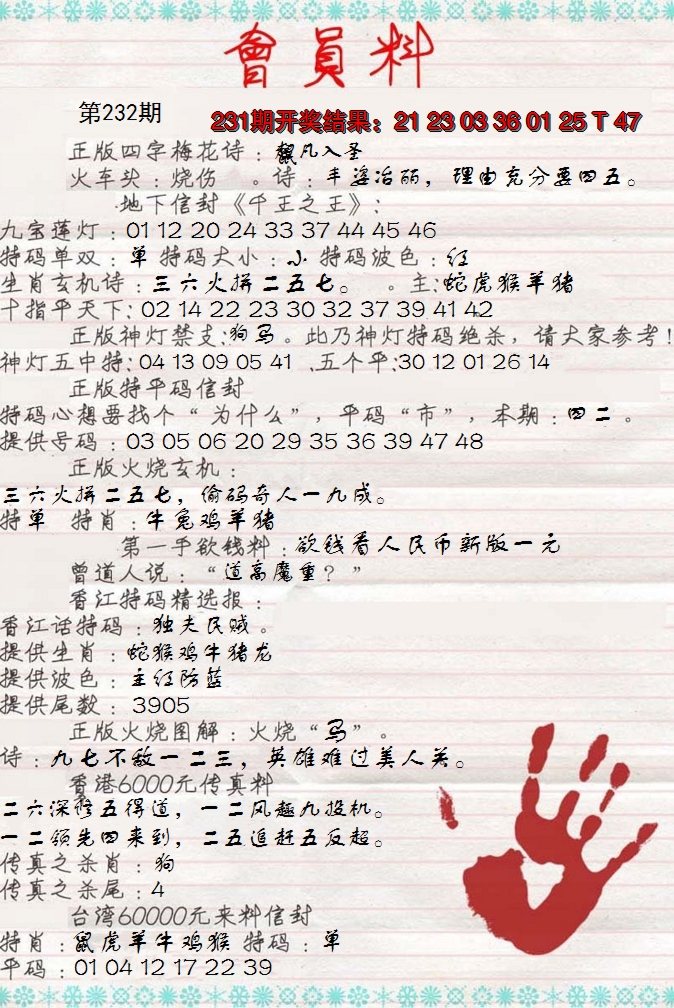 會員料
第232期
231期开奖结果：21 23 03 36 01 25 T 47
正版四字梅花诗：鼠凡入圣
火车头：烧伤 。诗：丰姿冶丽，理由充分要四五。
地下信封《千王之王》：
九宝莲灯：01 12 20 24 33 37 44 45 46
特码单双：单 特码大小：小 特码波色：红
生肖玄机诗：三六火拼二五七。 。主：蛇虎猴羊猪
十指平天下：02 14 22 23 30 32 37 39 41 42
正版神灯禁支：狗马。此乃神灯特码绝杀，请大家参考！
神灯五中特：04 13 09 05 41 .五个平：30 12 01 26 14
正版特平码信封
特码心想要找个“为什么”，平码“市”，本期：四二。
提供号码：03 05 06 20 29 35 36 39 47 48
正版火烧玄机：
三六火拼二五七，偷码奇人一九成。
特单 特肖：牛兔鸡羊猪
第一手欲钱料：欲钱看人民币新版一元
曾道人说：“道高魔重？”
香江特码精选报：
香江话特码：独夫民贼。
提供生肖：蛇猴鸡牛猪龙
提供波色：主红防蓝
提供尾数：3905
正版火烧图解：火烧“马”。
诗：九七不敌一二三，英雄难过美人关。
香港6000元传真料
二六深修五得道，一二风趣九投机。
一二领先四来到，二五追赶五反超。
传真之杀肖：狗
传真之杀尾：4
台湾60000元来料信封
特肖：鼠虎羊牛鸡猴 特码：单
平码：01 04 12 17 22 39